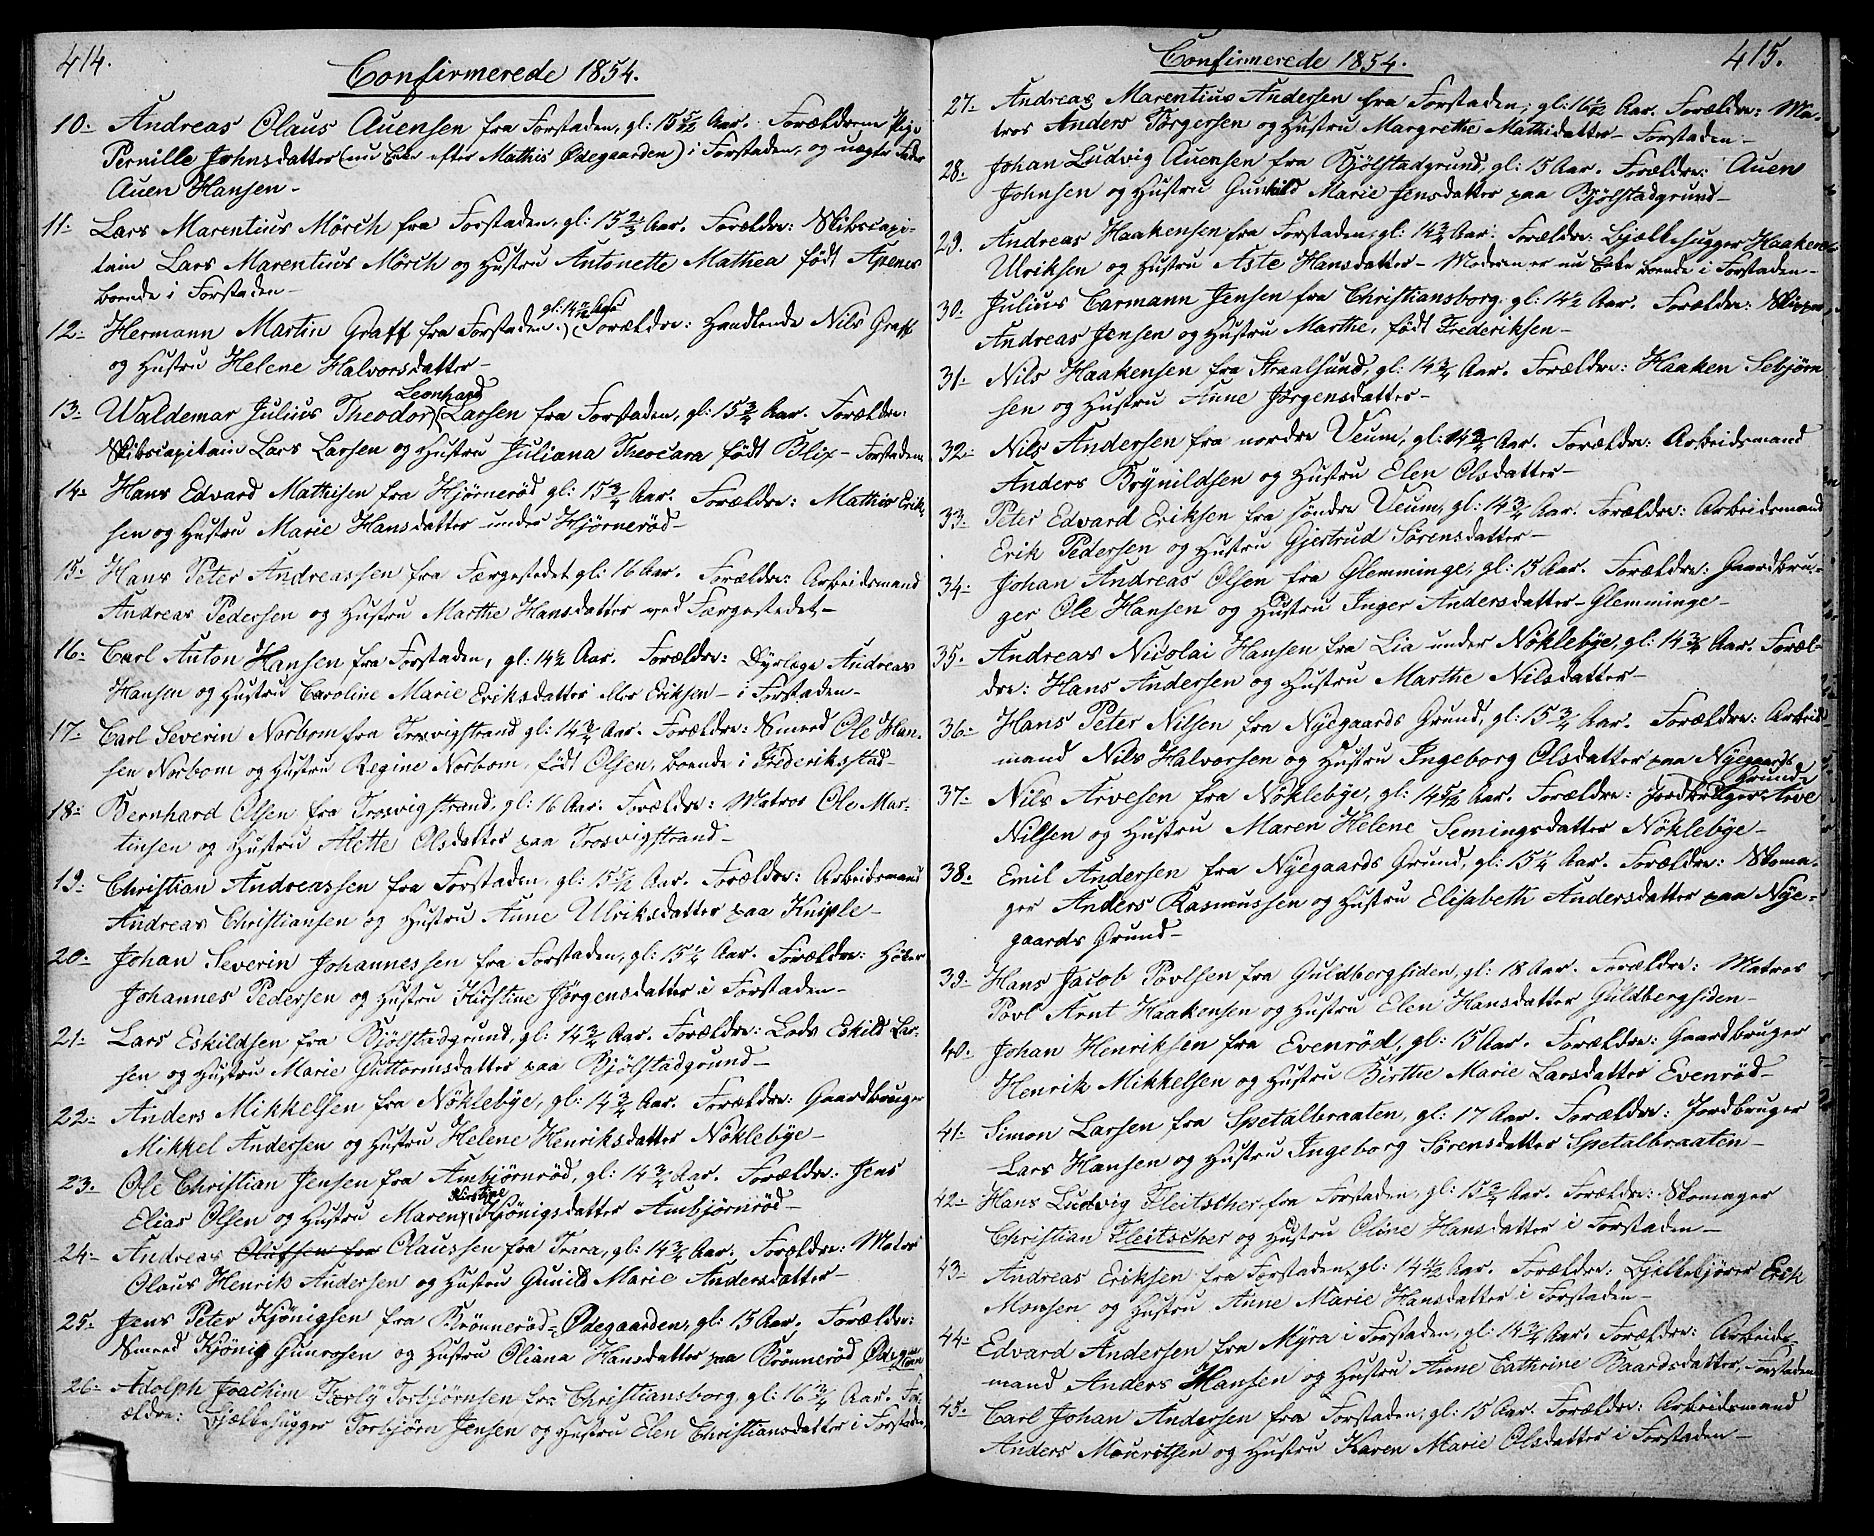 414.
Confirmerede 1854.
10. Andreas Olaus Auensen fra Forstaden, gl: 15 5/12 Aar. Forælderne Pige
Pernille Johnsdatter (nu Enke efter Mathis Ødegaarden) i Forstaden, og uægte Fader
Auen Hansen-
11. Lars Marentius Mörch fra Forstaden, gl: 15 2/3 Aar. Forældre: Skibscapi-
tain Lars Marentius Mörch og Hustru Antonette Mathea født Apenes
boende i Forstaden-
gl: 14 1/2 Aar
12. Hermann Martin Graff fra Forstaden. Forældre: Handlende Nils Graff
og Hustru Helene Halvorsdatter-
Leonhard
13. Waldemar Julius Theodor Larsen fra Forstaden, gl: 15 3/4 Aar. Forældre:
Skibscapitain Lars Larsen og Hustru Juliana Theocara født Blix- Forstaden
14. Hans Edvard Mathisen fra Hjørnerød gl: 15 3/4 Aar. Forældre: Mathis Erik-
sen og Hustru Marie Hansdatter under Hjørnerød-
15. Hans Peter Andreassen fra Færgestedet gl: 16 Aar. Forældre: Arbeidsmand
Andreas Pedersen og Hustru Marthe Hansdatter ved Færgestedet-
16. Carl Anton Hansen fra Forstaden, gl: 14 1/2 Aar. Forældre: Dyrlæge Andreas
Hansen og Hustru Caroline Marie Eriksdatter eller Eriksen- i Forstaden-
17. Carl Severin Norbom fra Trosvigstrand gl: 14 3/4 Aar. Forældre: Smeed Ole Han-
sen Norbom og Hustru Regine Norbom, født Olsen, boende i Frederiksstad-
18. Bernhard Olsen fra Trosvigstrand, gl: 16 Aar. Forældre: Matros Ole Mar-
tinsen og Hustru Alette Olsdatter paa Trosvigstrand-
19. Christian Andreassen fra Forstaden, gl: 15 5/12 Aar. Forældre: Arbeidsmand
Andreas Christiansen og Hustru Anne Ulriksdatter paa Kniple-
20. Johan Severin Johannessen fra Forstaden, gl: 15 1/4 Aar. Forældre:
Johannes Pedersen og Hustru Kirstine Jørgensdatter i Forstaden-
21. Lars Eskildsen fra Bjølstadgrund, gl: 14 3/4 Aar. Forældre: Lods Eskild Lar-
sen og Hustru Marie Guttormsdatter paa Bjølstadgrund-
22. Anders Mikkelsen fra Nøklebye, gl: 14 3/4 Aar. Forældre: Gaardbruger
Mikkel Andersen og Hustru Helene Henriksdatter Nøklebye-
23. Ole Christian Jensen fra Ambjørnrød, gl: 14 3/4 Aar. Forældre: Jens
Kirstine
Elias Olsen og Hustru Maren Kjönigsdatter Ambjørnrød-
24. Andreas Olufsen fra Olaussen fra Trara, gl: 14 3/4 Aar. Forældre: Matros
Olaus Henrik Andersen og Hustru Gunild Marie Andersdatter-
25. Jens Peter Kjönigsen fra Brønnerød-Ødegaarden, gl: 15 Aar. Forældre:
Smeed Kjönig Gunrosen og Hustru Oliana Hansdatter paa Brønnerød Ødeg
26. Adolph Joachim Torbjørnsen fra Christiansborg, gl: 16 3/4 Aar. For-
ældre: Bjælkehugger Torbjørn Jensen og Hustru Elen Christiansdatter i Forstaden,
415.
Confirmerede 1854.
27. Andreas Marentius Andersen fra Forstaden, gl: 16 1/2 Aar. Forældre: Ma-
tros Anders Børgersen og Hustru Margrethe Mathisdatter- Forstaden-
28. Johan Ludvig Auensen fra Bjølstadgrund, gl: 15 Aar. Forældre: Auen
Johnsen og Hustru Gunhild Marie Jensdatter paa Bjølstadgrund-
29. Andreas Haakensen fra Forstaden, gl: 14 3/4 Aar. Forældre: Bjælkehugger Haaken
Ulriksen og Hustru Aste Hansdatter- Moderen er nu Enke boende i Forstaden-
30. Julius Carmann Jensen fra Christiansborg, gl: 14 1/2 Aar. Forældre: Skipper
Andreas Jensen og Hustru Marthe, født Frederiksen-
31. Nils Haakensen fra Straalsund, gl: 14 3/4 Aar. Forældre: Haaken Sebjørn
sen og Hustru Anne Jørgensdatter-
32. Nils Andersen fra nordre Veum, gl: 14 3/4 Aar. Forældre: Arbeidsmand
Anders Brynildsen og Hustru Elen Olsdatter-
33. Peter Edvard Eriksen fra søndre Veum, gl: 14 3/4 Aar. Forældre: Arbeidsmand
Erik Pedersen og Hustru Gjertrud Sørensdatter-
34. Johan Andreas Olsen fra Glemminge, gl: 15 Aar. Forældre: Gaardbru-
ger Ole Hansen og Hustru Inger Andersdatter- Glemminge-
35. Andreas Nicolai Hansen fra Lia under Nøklebye, gl: 14 3/4 Aar. Foræl-
dre: Hans Andersen og Hustru Marthe Nilsdatter-
36. Hans Peter Nilsen fra Nyegaards Grund, gl: 15 3/4 Aar. Forældre: Arbeids
mand Nils Halvorsen og Hustru Ingeborg Olsdatter paa Nyegaards
Grund-
37. Nils Arvesen fra Nøklebye, gl: 14 5/12 Aar. Forældre: Jordbruger Arve
Nilsen og Hustru Maren Helene Semingsdatter Nøklebye-
38. Emil Andersen fra Nyegaards Grund, gl: 15 1/4 Aar. Forældre: Skoma-
ger Anders Rasmussen og Hustru Elisabeth Andersdatter paa Nye-
gaards Grund-
39. Hans Jacob Povlsen fra Guldbergsiden, gl: 18 Aar. Forældre: Matros
Povl Arnt Haakensen og Hustru Elen Hansdatter Guldbergsiden-
40. Johan Henriksen fra Evenrød, gl: 15 Aar. Forældre: Gaardbruger
Henrik Mikkelsen og Hustru Birthe Marie Larsdatter Evenrød-
41. Simon Larsen fra Spetalbraaten, gl: 17 Aar. Forældre: Jordbruger
Lars Hansen og Hustru Ingeborg Sørensdatter Spetalbraaten-
42. Hans Ludvig Fleitscher fra Forstaden, gl: 15 3/4 Aar. Forældre: Skomager
Christian Fleitscher og Hustru Oline Hansdatter i Forstaden-
43. Andreas Eriksen fra Forstaden, gl: 14 1/2 Aar. Forældre: Bjelkekjører Erik
Monsen og Hustru Anne Marie Hansdatter i Forstaden-
44. Edvard Andersen fra Myra i Forstaden, gl: 14 3/4 Aar. Forældre: Arbeids-
mand Anders Hansen og Hustru Anne Cathrine Baardsdatter, Forstaden
45. Carl Johan Andersen fra Forstaden, gl: 15 Aar. Forældre: Arbeidsmand
Anders Mouritsen og Hustru Karen Marie Olsdatter i Forstaden-